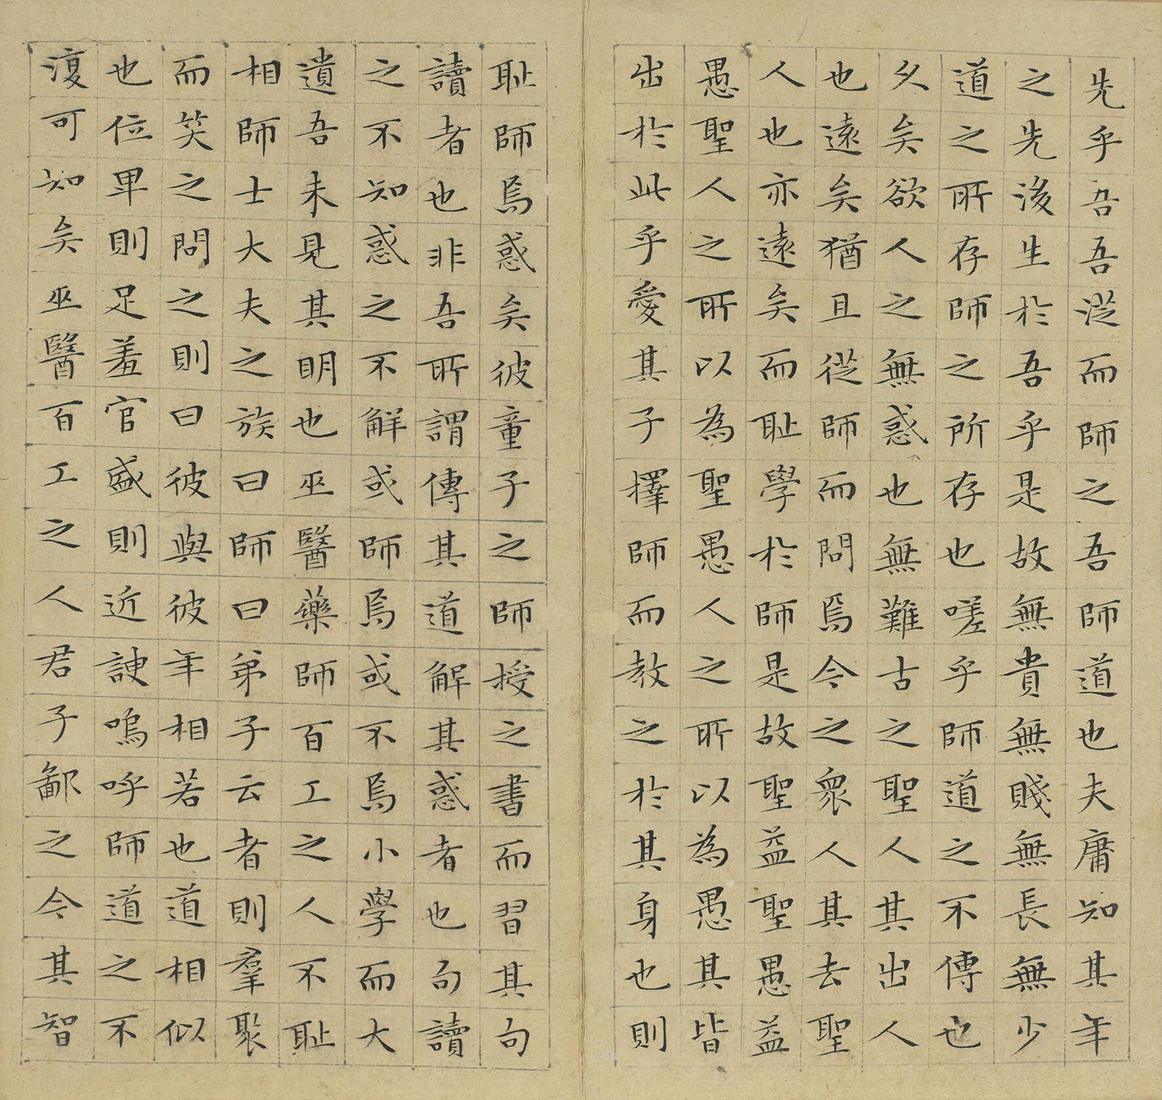 先乎吾吾從而師之吾師道也夫庸知其年
之先後生於吾乎是故無貴無賤無長無少
道之所存師之所存也嗟乎師道之不傳也
久矣欲人之無惑也無難古之聖人其出人
也遠矣猶且從師而問焉今之衆人其去聖
人也亦遠矣而耻學於師是故聖益聖愚益
愚聖人之所以為聖愚人之所以為愚其皆
出於此乎愛其子擇師而教之於其身也則
耻師焉惑矣彼童子之師授之書而習其句
讀者也非吾所謂傳其道解其惑者也句讀
之不知惑之不解或師焉或不焉小學而大
遺吾未見其明也巫醫藥師百工之人不耻
相師士大夫之族曰師曰弟子云者則羣聚
而笑之問之則曰彼與彼年相若也道相似
也位卑則足羞官盛則近諛嗚呼師道之不
復可知矣巫醫百工之人君子鄙之今其智